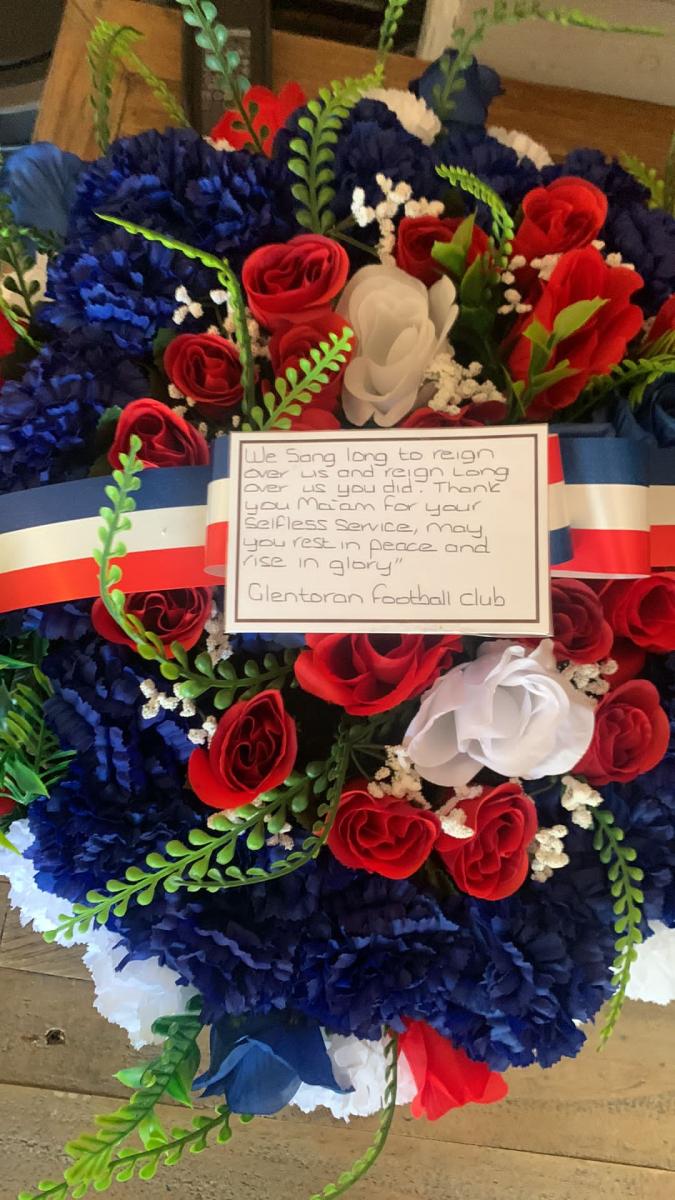 We Sang long to reign
over us and reign Long
over us you did. Thank
you Ma'am for your
Selfless Service, may
you rest in peace and
rise in glory"
Glentoran Football Club